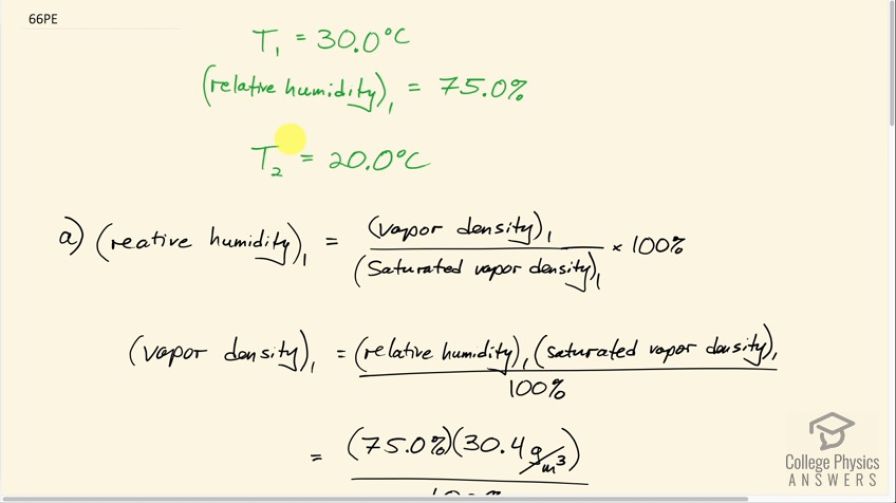 66PE
T₁ = 30.0°C
(relative humidity)₁ = 75.0%
T₂ = 20.0°C
a) (reative humidity)₁ = (vapor density)₁ / (Saturated vapor density)₁ × 100%
(vapor density)₁ = (relative humidity)₁ (saturated vapor density)₁ / 100%
= (75.0%)(30.4 g/m³)
College Physics
ANSWERS